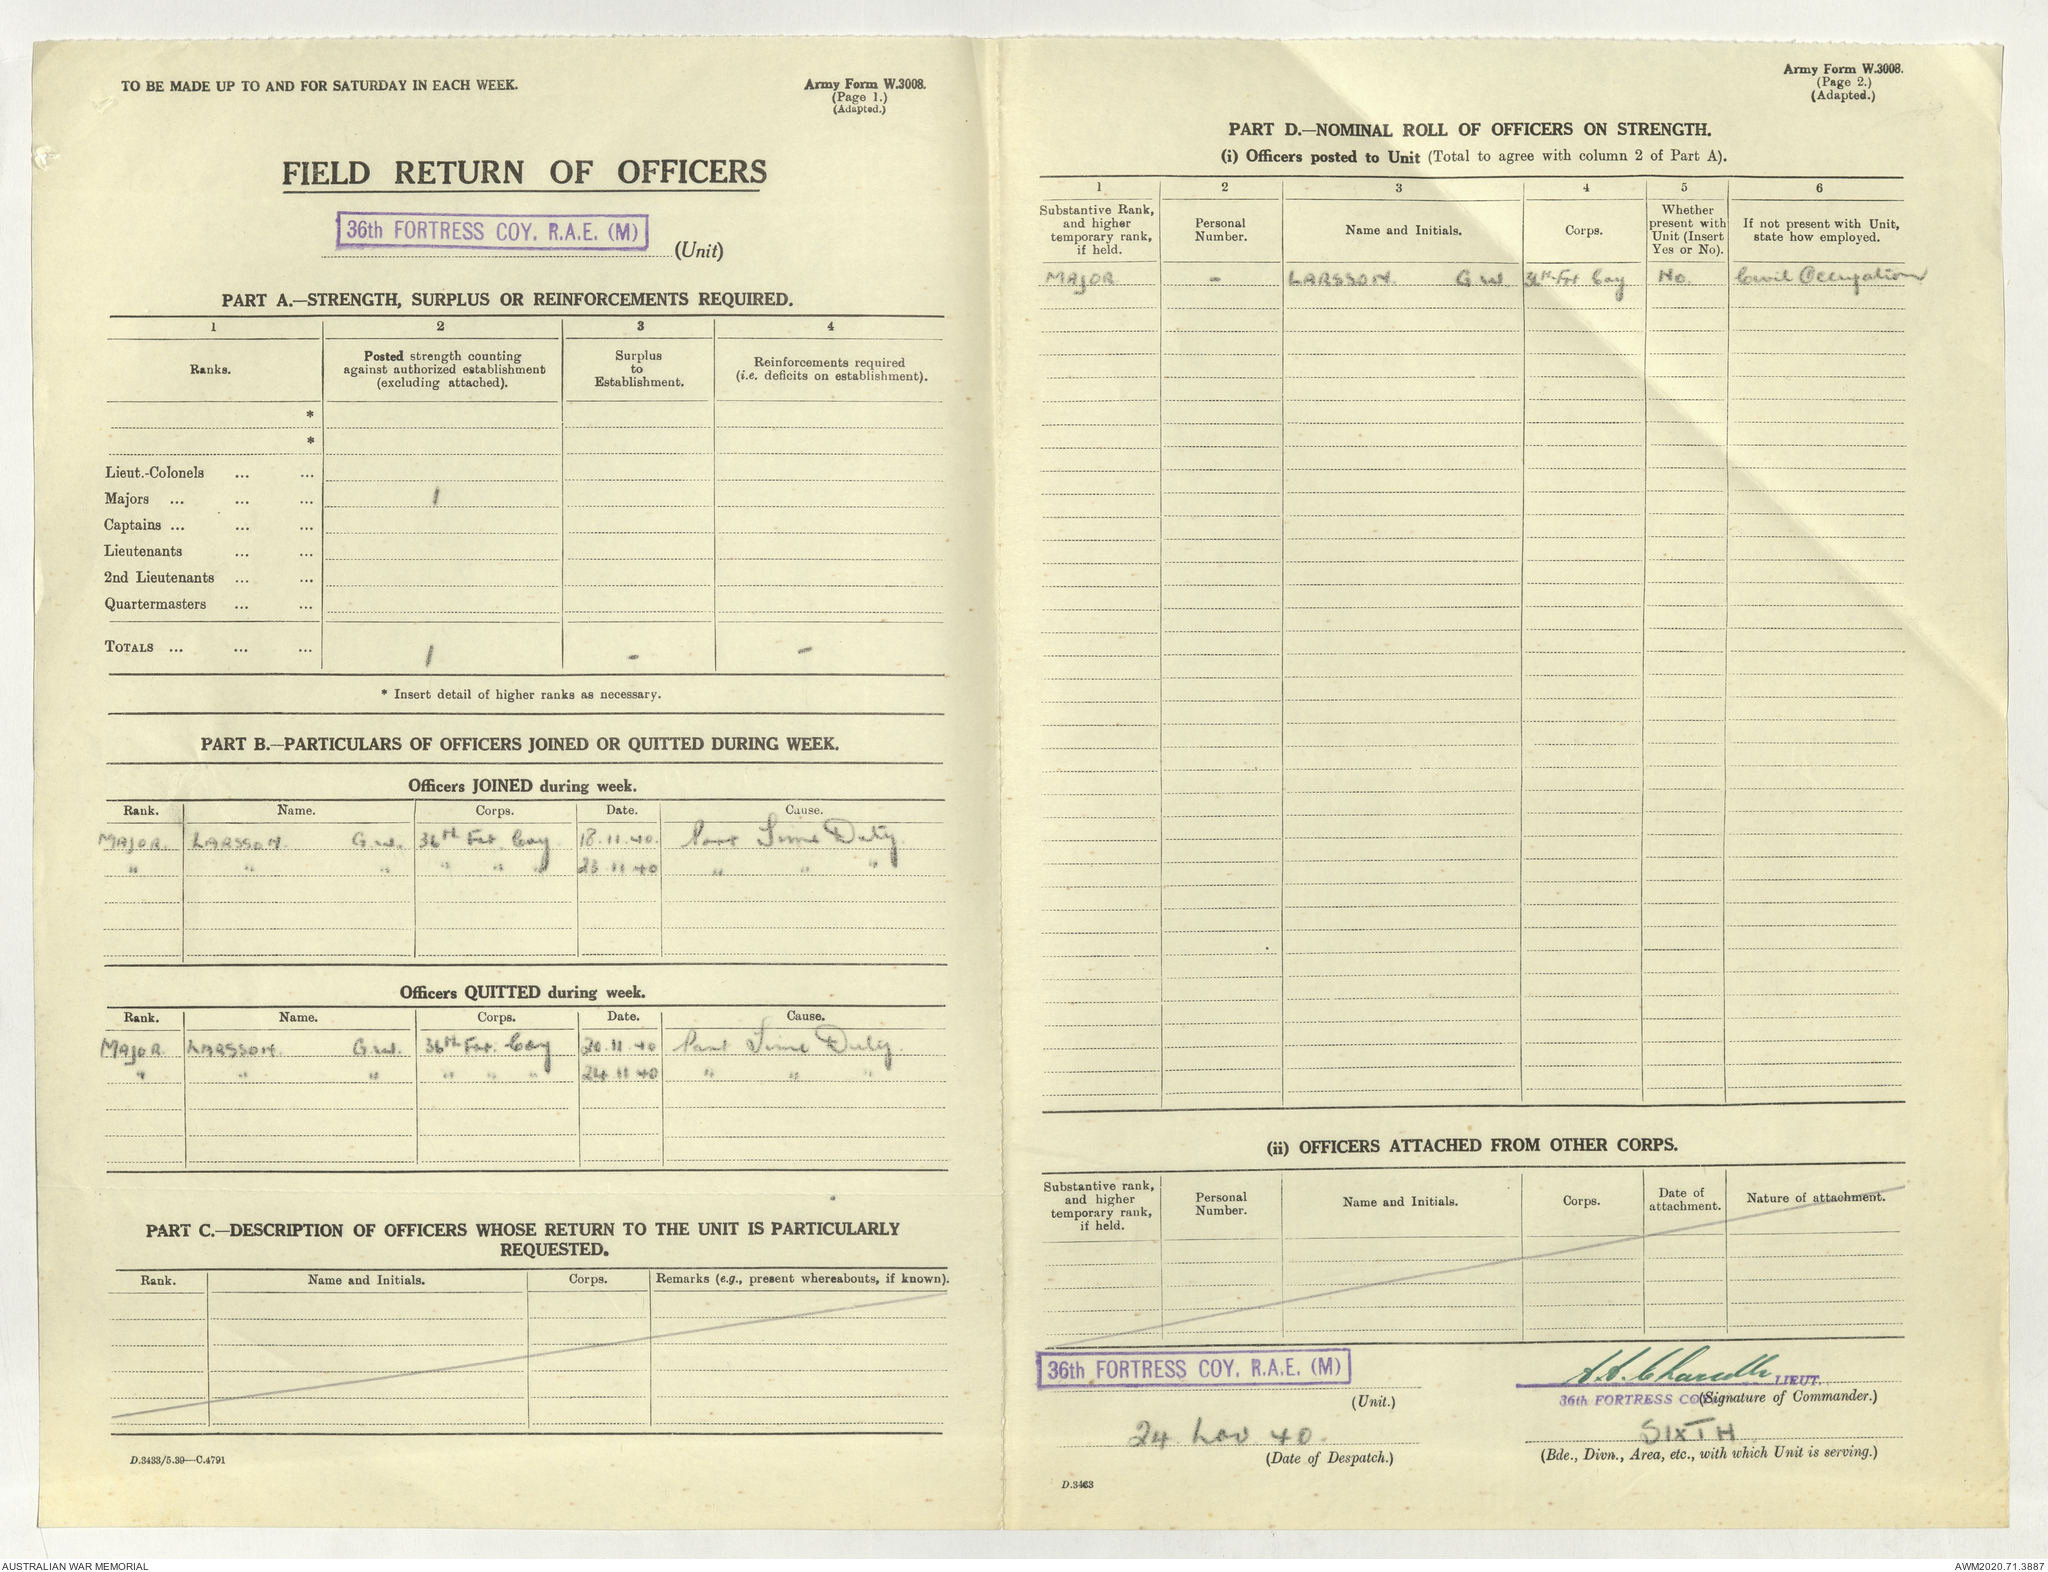 TO BE MADE UP TO AND FOR SATURDAY IN EACH WEEK.
Army Form W.3008.
(Page 1.)
(Adapted.)
FIELD RETURN OF OFFICERS
36th FORTRESS COY. R.A.E. (M)
(Unit)
PART A.—STRENGTH, SURPLUS OR REINFORCEMENTS REQUIRED.
1 2 3 4
Ranks. Posted strength counting against authorized establishment (excluding attached). Surplus to Establishment. Reinforcements required (i.e. deficits on establishment).
*
*
Lieut.-Colonels ... ...
Majors ... ... ... 1
Captains ... ... ...
Lieutenants ... ...
2nd Lieutenants ... ...
Quartermasters ... ...
TOTALS ... ... ... 1 - -
* Insert detail of higher ranks as necessary.
PART B.—PARTICULARS OF OFFICERS JOINED OR QUITTED DURING WEEK.
Officers JOINED during week.
Rank. Name. Corps. Date. Cause.
MAJOR. LARSSON. G.W. 36th Fort Coy 18.11.40. Part Time Duty
" " " " " " 23.11.40 " " "
Officers QUITTED during week.
Rank. Name. Corps. Date. Cause.
MAJOR. LARSSON. G.W. 36th For. Coy 20.11.40 Part Time Duty.
" " " " " " 24.11.40 " " "
PART C.—DESCRIPTION OF OFFICERS WHOSE RETURN TO THE UNIT IS PARTICULARLY
REQUESTED.
Rank. Name and Initials. Corps. Remarks (e.g., present whereabouts, if known).
D.3433/5.39—C.4791
Army Form W.3008.
(Page 2.)
(Adapted.)
PART D.—NOMINAL ROLL OF OFFICERS ON STRENGTH.
(i) Officers posted to Unit (Total to agree with column 2 of Part A).
1 2 3 4 5 6
Substantive Rank, and higher temporary rank, if held. Personal Number. Name and Initials. Corps. Whether present with Unit (Insert Yes or No). If not present with Unit, state how employed.
MAJOR - LARSSON. G.W. 36th Fort Coy No. Civil Occupation
(ii) OFFICERS ATTACHED FROM OTHER CORPS.
Substantive rank, and higher temporary rank, if held. Personal Number. Name and Initials. Corps. Date of attachment. Nature of attachment.
36th FORTRESS COY. R.A.E. (M)
(Unit.)
LIEUT.
36th FORTRESS CO
(Signature of Commander.)
24 Nov 40.
(Date of Despatch.)
SIXTH
(Bde., Divn., Area, etc., with which Unit is serving.)
D.3433
AUSTRALIAN WAR MEMORIAL
AWM2020.71.3887